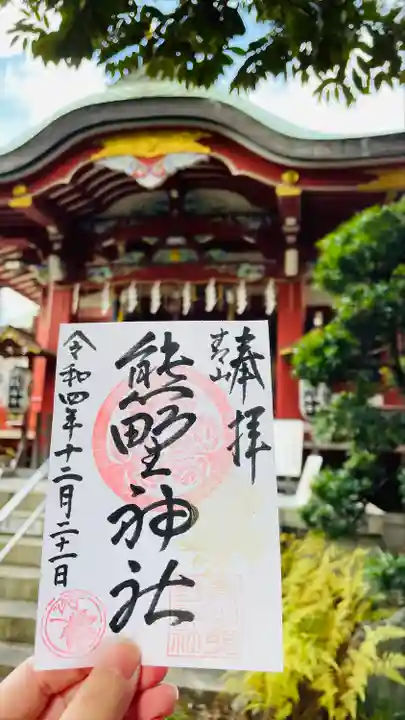 奉拝
青山
熊野神社
令和四年十二月二十一日